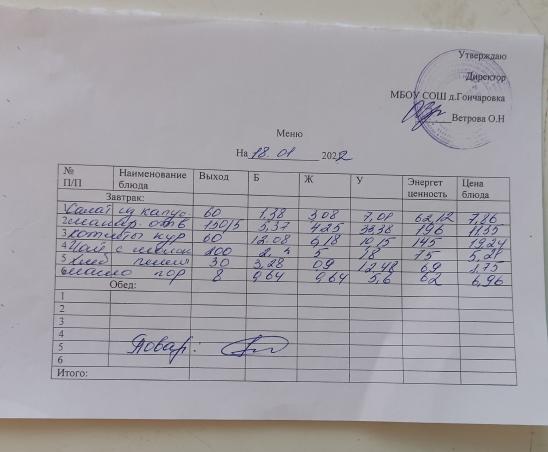 Утверждаю
Директор
МБОУ СОШ д.Гончаровка
Ветрова О.Н
Меню
На 18.01 2022
№ П/П Наименование блюда Выход Б Ж У Энергет ценность Цена блюда
Завтрак:
1 Салат из капус 60 1,38 3,08 7,08 62,12 7,86
2 макар. отв 150/5 5,37 4,25 33,38 196 11,55
3 котлеты кур 60 12.08 6,18 10,15 145 19,24
4 Чай с 200 18 75 5,28
5 Хлеб пшен 30 3,28 0,9 12,48 69 1,75
6 масло пор 8 9,64 9,64 5,6 62 6,96
Обед:
1
2
3
4
5 Повар:
6
Итого: